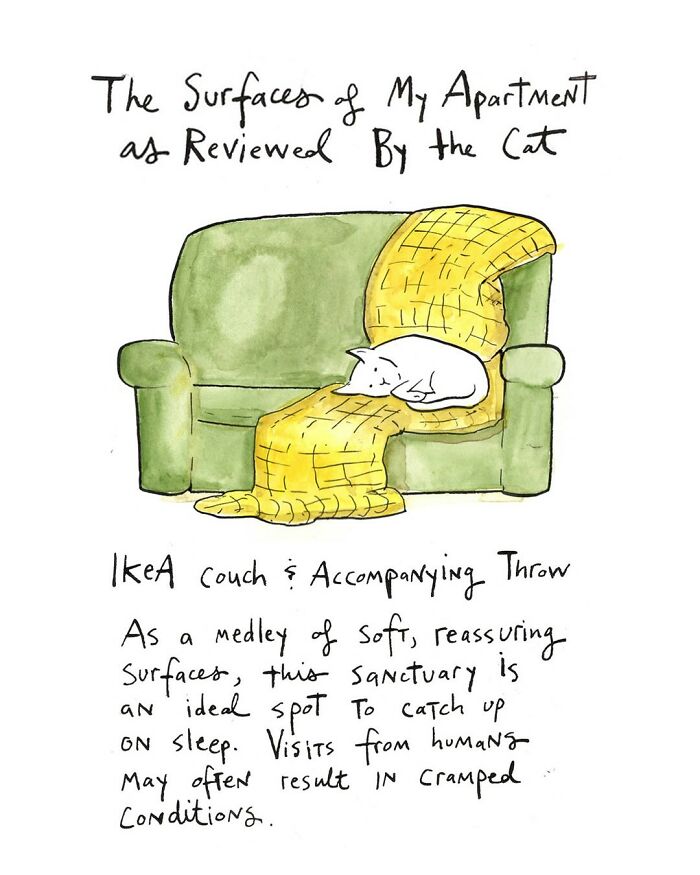 The Surfaces of My Apartment
as Reviewed By the Cat
IKEA couch & Accompanying Throw
As a medley of soft, reassuring
surfaces, this sanctuary is
an ideal spot to catch up
on sleep. Visits from humans
may often result in cramped
conditions.